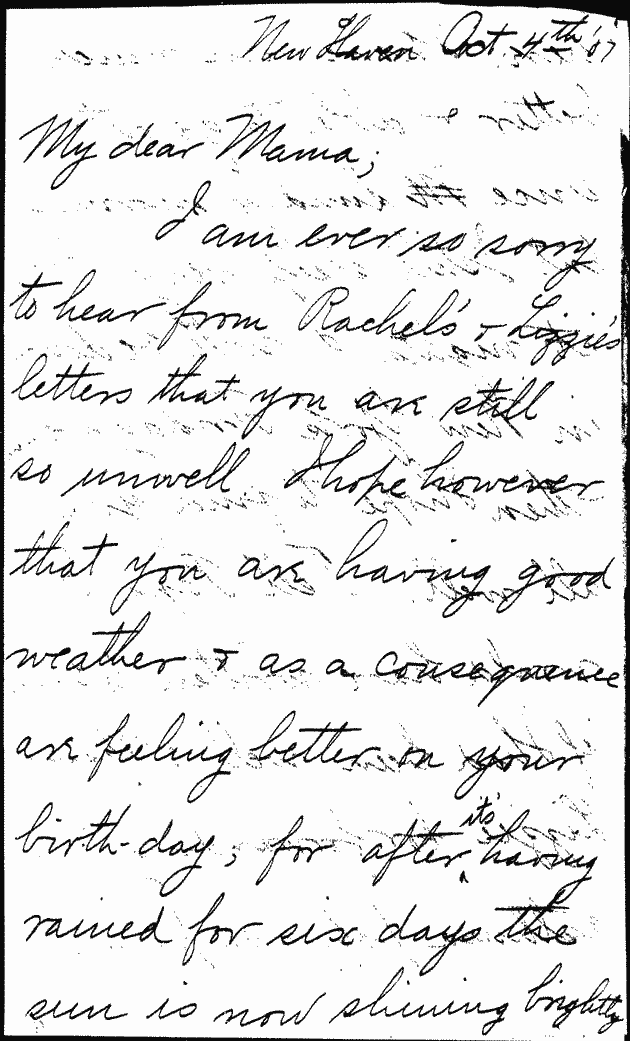 New Haven Oct. 4th '07
My dear Mama;
I am ever so sorry
to hear from Rachel's & Lizzie's
letters that you are still
so unwell I hope however
that you are having good
weather & as a consequence
are feeling better on your
birth-day; for after it's having
rained for six days the
sun is now shining brightly